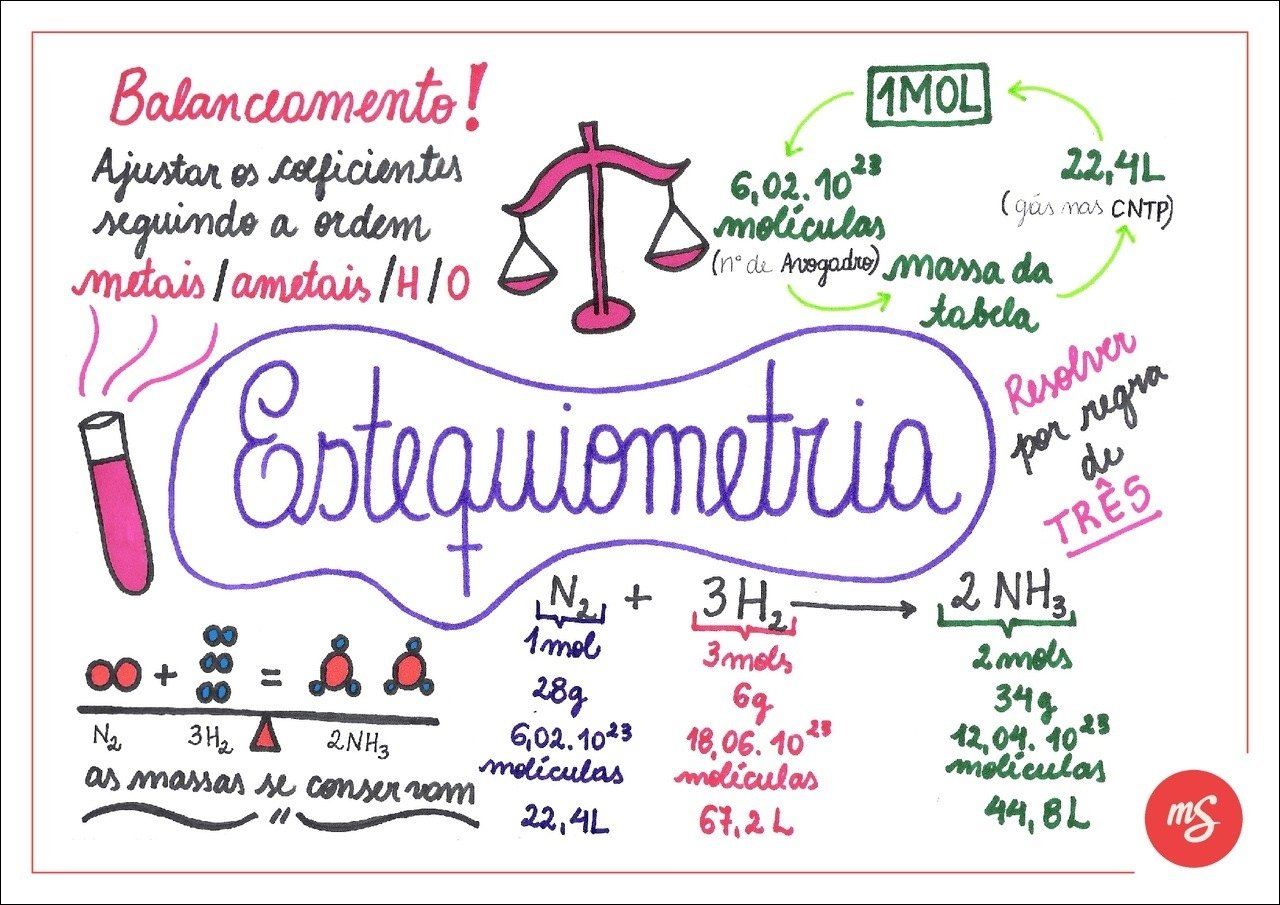 Balanceamento!
Ajustar os coeficientes
seguindo a ordem
metais / ametais / H / O
1MOL
6,02.10²³
moléculas
(nº de Avogadro)
massa da
tabela
22,4L
(gás nas CNTP)
Estequiometria
Resolver
por regra
de
TRÊS
N₂ + 3H₂ → 2 NH₃
1mol 3mols 2mols
28g 6g 34g
6,02.10²³ 18,06.10²³ 12,04.10²³
moléculas moléculas moléculas
22,4L 67,2L 44,8L
+ =
N₂ 3H₂ 2NH₃
as massas se conservam
"
mS